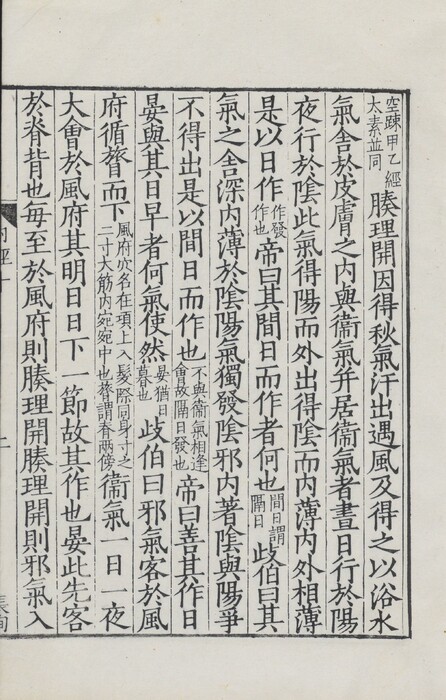 空踈甲乙經太素並同腠理開因得秋氣汗出遇風及得之以浴水
氣舍於皮膚之内與衞氣并居衞氣者晝日行於陽
夜行於陰此氣得陽而外出得陰而内薄内外相薄
是以日作作發作也帝曰其間日而作者何也間日謂隔日歧伯曰其
氣之舍深内薄於陰陽氣獨發陰邪内著陰與陽爭
不得出是以間日而作也不與衞氣相逢會故隔日發也帝曰善其作日
晏與其日早者何氣使然晏猶日暮也歧伯曰邪氣客於風
府循膂而下風府穴名在項上入髮際同身寸之二寸大筋内宛宛中也膂謂脊兩傍衞氣一日一夜
大會於風府其明日日下一節故其作也晏此先客
於脊背也每至於風府則腠理開腠理開則邪氣入